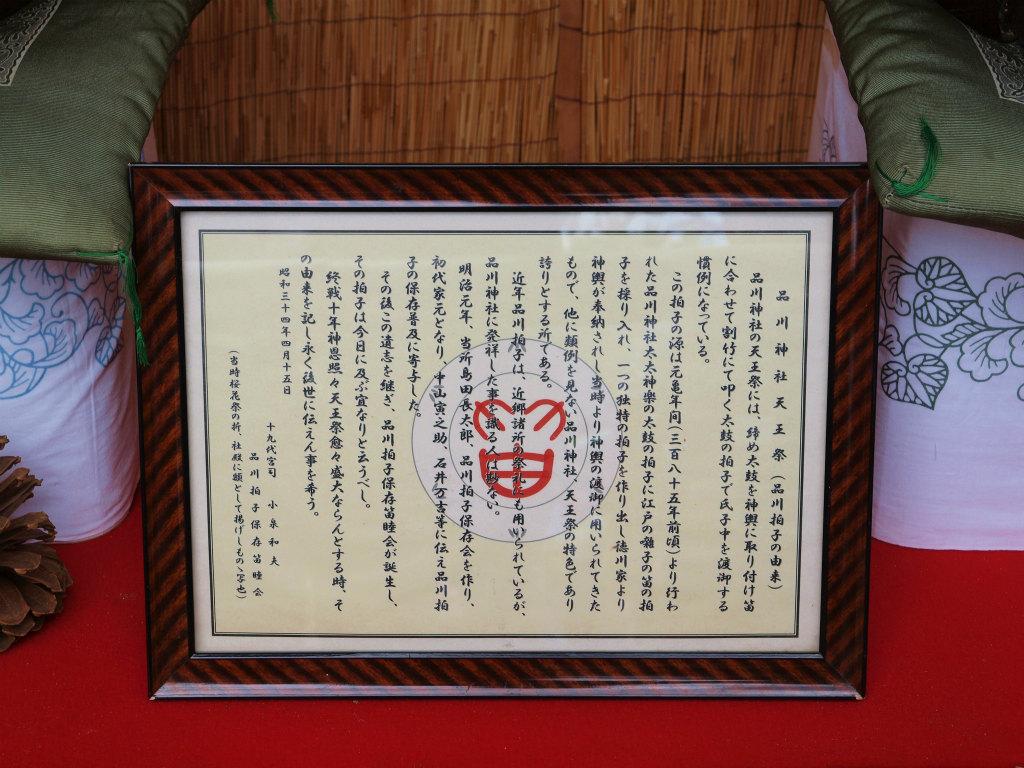 品川神社天王祭（品川拍子の由来）
品川神社の天王祭には、締め太鼓を神輿に取り付け笛
に合わせて割竹にて叩く太鼓の拍子で氏子中を渡御する
慣例になっている。
この拍子の源は元亀年間（三百八十五年前頃）より行わ
れた品川神社太太神楽の太鼓の拍子に江戸の囃子の笛の拍
子を採り入れ、一つの独特の拍子を作り出し徳川家より
神輿が奉納されし当時より神輿の渡御に用いられてきた
もので、他に類例を見ない品川神社、天王祭の特色であり
誇りとする所である。
近年品川拍子は、近郷諸所の祭礼にも用いられているが、
品川神社に発祥した事を識る人は尠ない。
明治元年、当所島田長太郎、品川拍子保存会を作り、
初代家元となり、中山寅之助、石井万吉等に伝え品川拍
子の保存普及に寄与した。
その後この遺志を継ぎ、品川拍子保存笛睦会が誕生し、
その拍子は今日に及ぶ宜なりと云うべし。
終戦十年神恩照々天王祭愈々盛大ならんとする時、そ
の由来を記し永く後世に伝えん事を希う。
昭和三十四年四月十五日
十九代宮司　小泉和夫
品川拍子保存笛睦会
（当時桜花祭の折、社殿に額として揚げしものゝ写也）